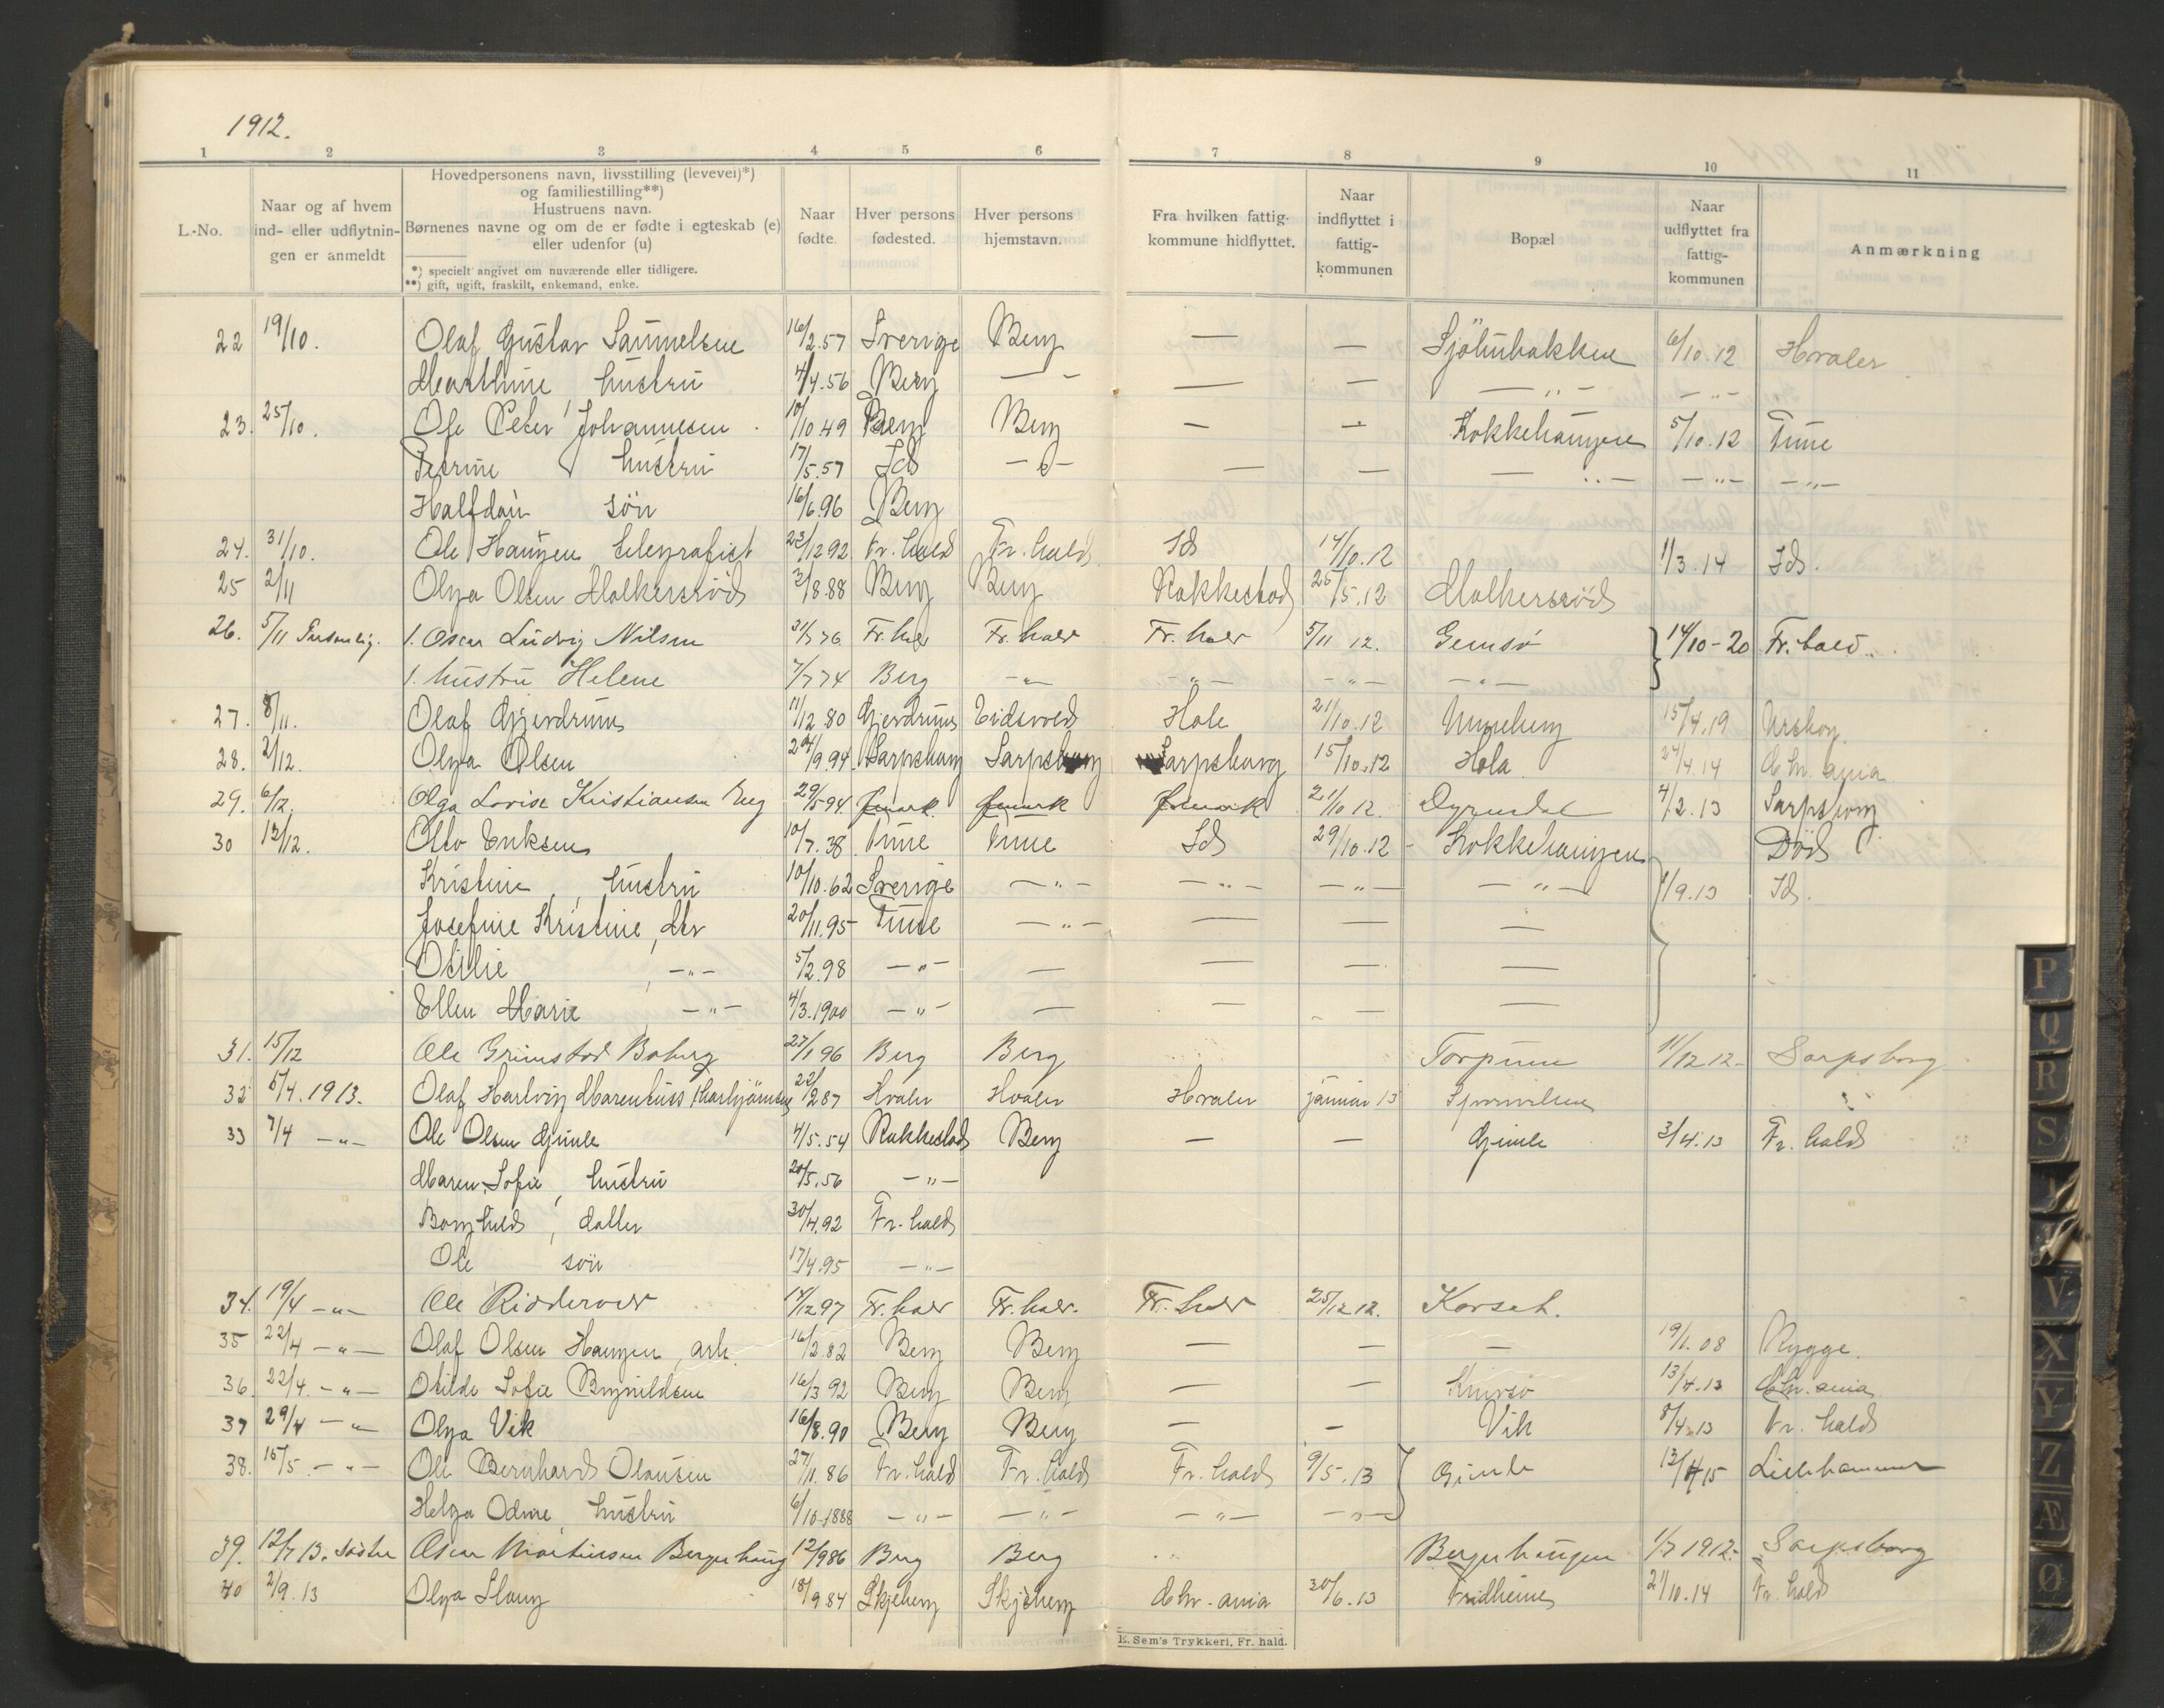 1912.
1 2 3 4 5 6 7 8 9 10 11
L.-No.
Naar og af hvem
ind- eller udflytnin-
gen er anmeldt
Hovedpersonens navn, livsstilling (levevei)*)
og familiestilling**)
Hustruens navn.
Børnenes navne og om de er fødte i egteskab (e)
eller udenfor (u)
*) specielt angivet om nuværende eller tidligere.
**) gift, ugift, fraskilt, enkemand, enke.
Naar
fødte.
Hver persons
fødested.
Hver persons
hjemstavn.
Fra hvilken fattig-
kommune hidflyttet.
Naar
indflyttet i
fattig-
kommunen
Bopæl
Naar
udflyttet fra
fattig-
kommunen
Anmærkning
22 19/10. Olaf Gustav Samuelsen 16/2.57 Sverige Berg — — 6/10.12 Hvaler
Marthine, hustru 4/4.56 Berg — — — — „ — — „ —
23. 25/10. Ole Peter Johannesen 10/10.49 Berg Berg — — Kokkehaugen 5/10.12 Tune
Petrine hustru 17/5.57 Ids — „ — — — — „ — — „ — — „ —
Halfdan søn 16/6.96 Berg
24. 31/10. Ole Haugen telegrafist 22/12 92 Fr. hald Fr. hald Ids 14/10.12 1/3.14 Ids.
25 2/11 Olga Olsen 3/8.88 Berg Berg Rakkestad 25/5.12
26. 5/11 Personlig. 1. Oscar Ludvig Nilsen 31/7 76 Fr. hald Fr. hald Fr. hald 5/11 12. Gemsø 14/10-20 Fr. hald.
1. hustru Helene 7/7 74 Berg — „ — — „ — — „ — — „ —
27. 8/11. Olaf Gjerdrum 11/12 80 Gjerdrum Eidsvold Hole 21/10.12 15/4.19 Urskog
28. 2/12. Olga Olsen 24/9.94 Sarpsborg Sarpsborg Sarpsborg 15/10.12 Hola 24/4.14 Chr. ania
29. 6/12. Olga Lovise Kristiansen 29/5 94 21/10 12. 4/2.13 Sarpsborg
30 12/12. Otto Eriksen 10/7.38 Tune Tune Ids 29/10.12 - Kokkehaugen Död
Kristine, hustru 10/10.62 Sverige — „ — — „ — — „ — — „ — 1/9.13 Ids.
Josefine Kristine, dtr 20/11.95 Tune — „ — — — —
Otilie, — „ — 5/2.98 — „ — — — — —
Ellen Marie, — „ — 4/3.1900 — „ — — — — —
31. 15/12 Ole Grimstad Boberg 27/1 96 Berg Berg Torpum 11/12 12- Sarpsborg
32 5/4.1913. Olaf Hartvig 22/12 87 Hvaler Hvaler Hvaler januar 13
33 7/4 — „ — Ole Olsen Gimle 4/5.54 Rakkestad Berg — — Gimle 3/4.13 Fr. hald
Maren Sofie, hustru 20/5.56 — „ —
Borghild, datter 30/4.92 Fr. hald
Ole søn 17/4.95 — „ —
34. 19/4 — „ — Ole Riddervold 14/12 97 Fr. hald Fr. hald. Fr. hald 25/12 12. Korset.
35 22/4 — „ — Olaf Olsen Haugen, arb. 16/2.82 Berg Berg — — — 19/1.08 Rygge.
36. 22/4. — „ — Otilde Sofie Brynildsen 16/3 92 Berg Berg — — 13/4.13 Chr. ania
37 29/4 — „ Olga Vik 16/8.90 Berg Berg — — Vik 8/4.13 Fr. hald
38. 15/5 — „ — Ole Bernhard Olausen 27/11.86 Fr. hald Fr. hald Fr. hald 9/5.13 Gimle 13/4 15 Lillehammer
Helga Odine, hustru 6/10-1888 — „ — — „ — — „ — — „ —
39. 12/7 13. Søster Oscar Martinsen Bergerhaug 12/9 86 Berg Berg Bergerhaugen 1/7 1912.- Sarpsborg
40 2/9.13 Olga Slang 18/9 84 Skjeberg Skjeberg Chr. ania 30/6.13 Fridheim 21/10.14 Fr. hald
E. Sem's Trykkeri, Fr. hald.
P
Q
R
S
V
X
Y
Z
Æ
Ø